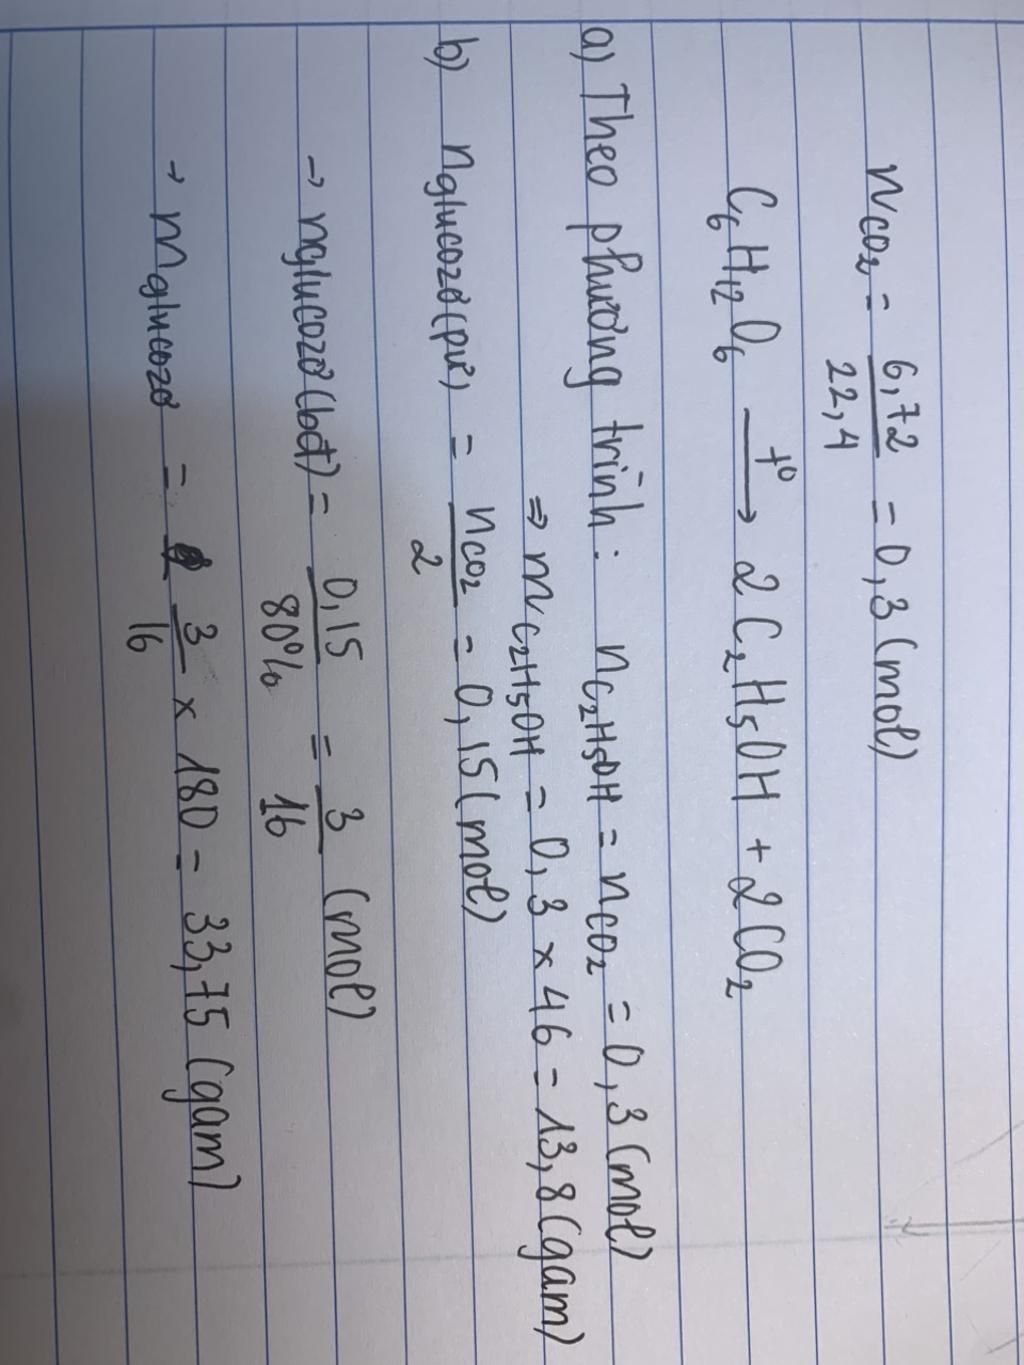 nCO₂ = 6,72/22,4 = 0,3 (mol)
C₆H₁₂O₆ —t⁰→ 2C₂H₅OH + 2CO₂
a) Theo phương trình: nC₂H₅OH = nCO₂ = 0,3 (mol)
⇒ mC₂H₅OH = 0,3 × 46 = 13,8 (gam)
b) nglucozơ(pư) = nCO₂/2 = 0,15 (mol)
→ nglucozơ(bđ) = 0,15/80% = 3/16 (mol)
→ mglucozơ = 3/16 × 180 = 33,75 (gam)